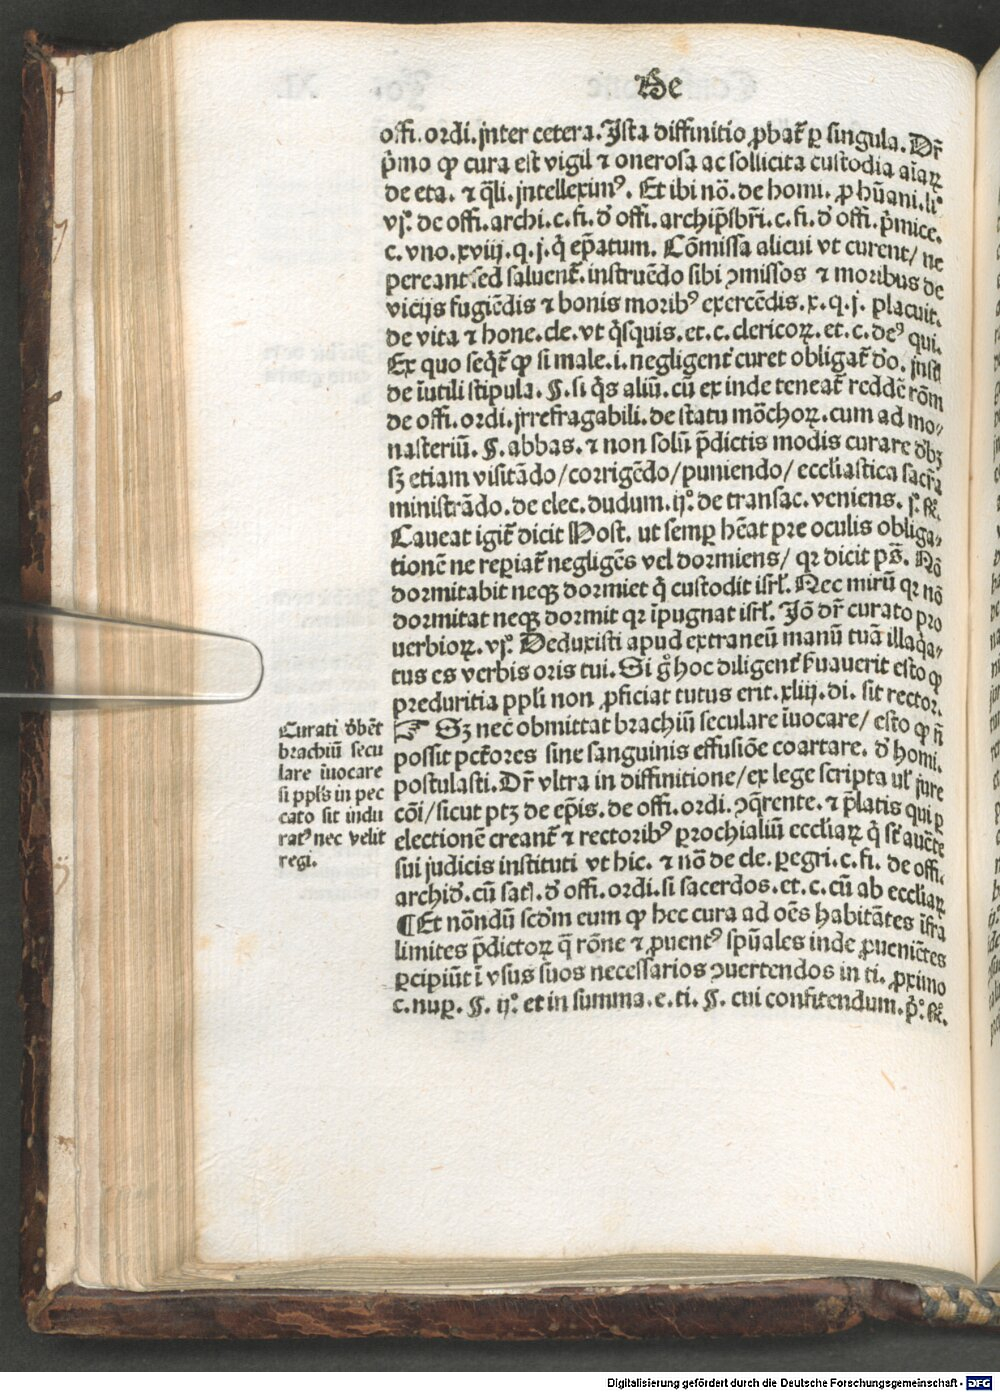 De
offi. ordi. jnter cetera. Ista diffinitio ꝓbat᷑ ꝑ singula. Dr̄
p̄mo ꝙ cura est vigil ⁊ onerosa ac sollicita custodia aīaꝝ
de eta. ⁊ q̄li. jntelleximꝰ. Et ibi nō. de homi. ꝓ hūani. li°
vj°. de offi. archi. c. fi. d̄ offi. archip̄sbr̄i. c. fi. d̄ offi. p̄mice.
c. vno. xviij. q. j. q̄ ep̄atum. Cōmissa alicui vt curent/ ne
pereant sed saluent᷑. instruēdo sibi ↄmissos ⁊ moribus de
vicijs fugiēdis ⁊ bonis moribꝰ exercēdis. x. q. j. placuit.
de vita ⁊ hone. cle. vt q̄squis. et. c. clericoꝝ. et. c. deꝰ qui.
Ex quo seq̄t᷑ ꝙ si male. i. negligent᷑ curet obligat᷑ d̄o. jnsti
de īutili stipula. §. si q̄s aliū. cū ex inde teneat᷑ reddē rōm
de offi. ordi. jrrefragabili. de statu mōchoꝝ. cum ad mo⸗
nasteriū. §. abbas. ⁊ non solū p̄dictis modis curare dꝫ
sꝫ etiam visitādo/ corrigēdo/ puniendo/ eccliastica sacr̄a
ministrādo. de elec. dudum. ij°. de transac. veniens. j°. ⁊c̄.
Caueat igit᷑ dicit Host. ut semꝑ hēat pre oculis obliga⸗
tionē ne reꝑiat᷑ negligēs vel dormiens/ qꝛ dicit ps̄. Nō
dormitabit neqꝫ dormiet q̄ custodit isrl̄. Nec mirū qꝛ nō
dormitat neqꝫ dormit qꝛ īpugnat isrl̄. Iō dr̄ curato pro
uerbioꝝ. vj°. Deduxisti apud extraneū manū tuā illaq̄a⸗
tus es verbis oris tui. Si g° hoc diligent᷑ s̄uauerit esto ꝙ
preduritia ppl̄i non ꝓficiat tutus erit. xliij. di. sit rector.
☞ Sꝫ nec obmittat brachiū seculare īuocare/ esto ꝙ n̄
possit pctōres sine sanguinis effusiōe coartare. d̄ homi.
postulasti. Dr̄ vltra in diffinitione/ ex lege scripta ul̄ jure
cōi/ sicut ptꝫ de ep̄is. de offi. ordi. ↄq̄rente. ⁊ p̄latis qui ꝑ
electionē creant᷑ ⁊ rectoribꝰ ꝑrochialiū eccliaꝝ q̄ st̄ auc̄te
sui judicis instituti vt hic. ⁊ nō de cle. ꝑegri. c. fi. de offi.
archid̄. cū satꝭ. d̄ offi. ordi. si sacerdos. et. c. cū ab eccliaꝝ
¶ Et nōndū scd̄m eum ꝙ hec cura ad oēs habitātes īfra
limites p̄dictoꝝ q̄ rōne ⁊ ꝓuentꝰ spūales inde ꝓueniētes
ꝑcipiūt ī vsus suos necessarios ↄuertendos in ti. ꝓximo
c. nuꝑ. §. ij°. et in summa. e. ti. §. cui confitendum. p̄°. ⁊c̄.
Curati d̄bēt
brachiū secu
lare īuocare
si ppl̄s in pec
cato sit indu
ratꝰ nec velit
regi.
Digitalisierung gefördert durch die Deutsche Forschungsgemeinschaft - DFG